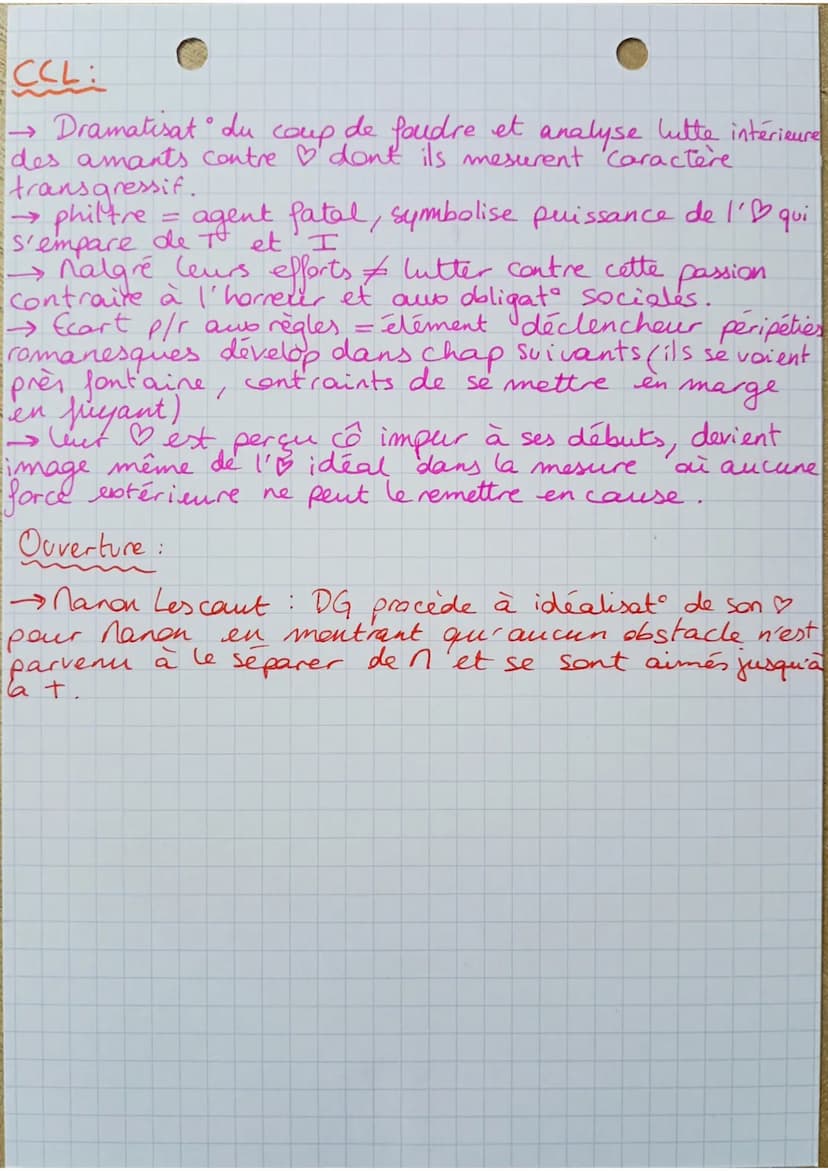 CCL :
→ Dramatisat° du coup de foudre et analyse lutte intérieure
des amants contre ♡ dont ils mesurent caractère
transgressif.
→ philtre = agent fatal, symbolise puissance de l'♡ qui
s'empare de T et I
→ Malgré leurs efforts ≠ lutter contre cette passion
contraire à l'honneur et aux obligat° sociales.
→ Écart p/r aux règles = élément déclencheur péripéties
romanesques dévelop dans chap suivants (ils se voient
près fontaine, contraints de se mettre en marge
en fuyant)
→ Leur ♡ est perçu cô impur à ses débuts, devient
image même de l'♡ idéal dans la mesure où aucune
force extérieure ne peut le remettre en cause.
Ouverture :
→ Manon Lescaut : DG procède à idéalisat° de son ♡
pour Manon en montrant qu'aucun obstacle n'est
parvenu à le séparer de M et se sont aimés jusqu'à
la +.